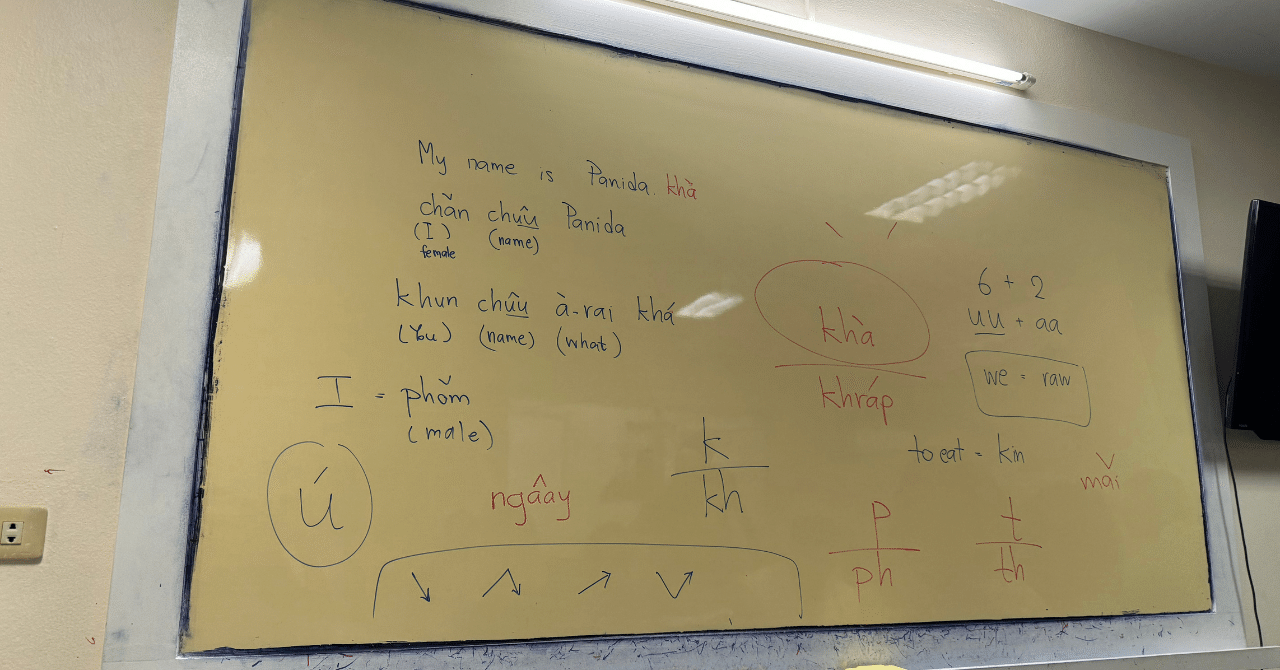 My name is Panida. khà
chǎn chʉ̂ʉ Panida
(I) (name)
female
khun chʉ̂ʉ à-rai khá
(You) (name) (what)
I = phǒm
(male)
Ú
ngâay
k
kh
khà
khráp
6 + 2
uu + aa
we = raw
to eat = kin
mǎi
p
ph
t
th